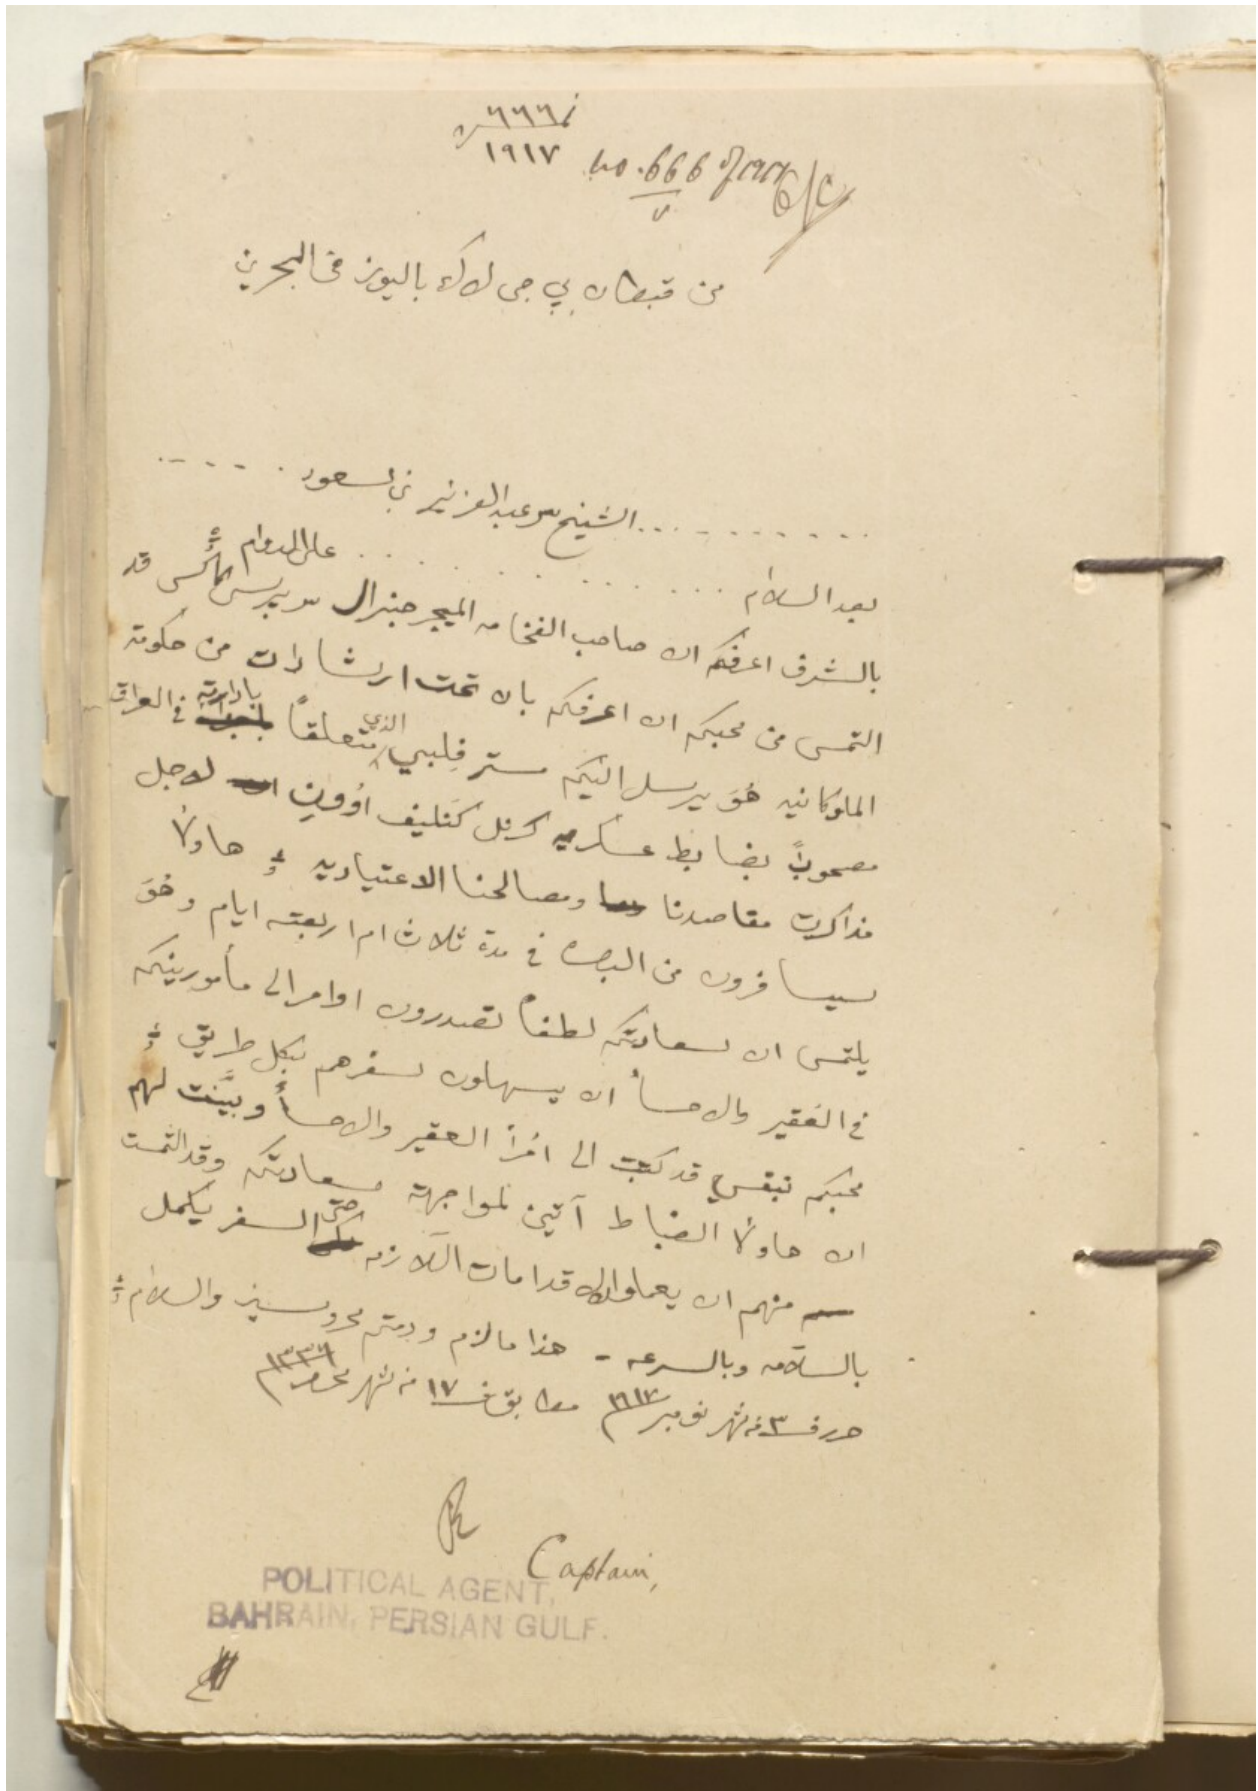 نمرة ٦٦٦
١٩١٧ no. 666 of 1917
من قبطان بي جي لاك باليوز في البحرين
. . . . . . . . . الشيخ سر عبد العزيز بن السعود . . . . .
بعد السلام . . . . . . . . . . على الدوام
بالشرف اعرفكم ان صاحب الفخامه الميجر جنرال سر پرسي كاكس قد
التمس من محبكم ان اعرفكم بان تحت ارشادات من حكومة
الملوكانيه هُوَ يرسل اليكم مستر فِلبي الذي متعلقاً بادارته في العراق
مصحوباً بضابط عسكريه كرنل كَنليف اوُوين لاجل
مذاكرت مقاصدنا ومصالحنا الاعتياديه هاولا
سيسافرون من البصره في مدة ثلاث ام اربعته ايام وهُوَ
يلتمس ان سعادتكم لطفاً تصدرون اوامر الى مأمورينكم
في العُقير والاحسأ ان يسهلون سفرهم بكل طريق
محبكم بنفسي قد كتبت الى امُرأ العقير والاحسأ وبيَّنت لهم
ان هاولا الضباط آتين لمواجهة سعادتكم وقد التمست
منهم ان يعملوا الاقدامات اللازمه حتى السفر يكمل
بالسلامه وبالسرعه - هذا ما لزم ودمتم محروسين والسلام
حرر في ٣ من شهر نوفمبر ١٩١٧م مطابق في ١٧ من شهر محرم ١٣٣٦
Captain,
POLITICAL AGENT,
BAHRAIN, PERSIAN GULF.